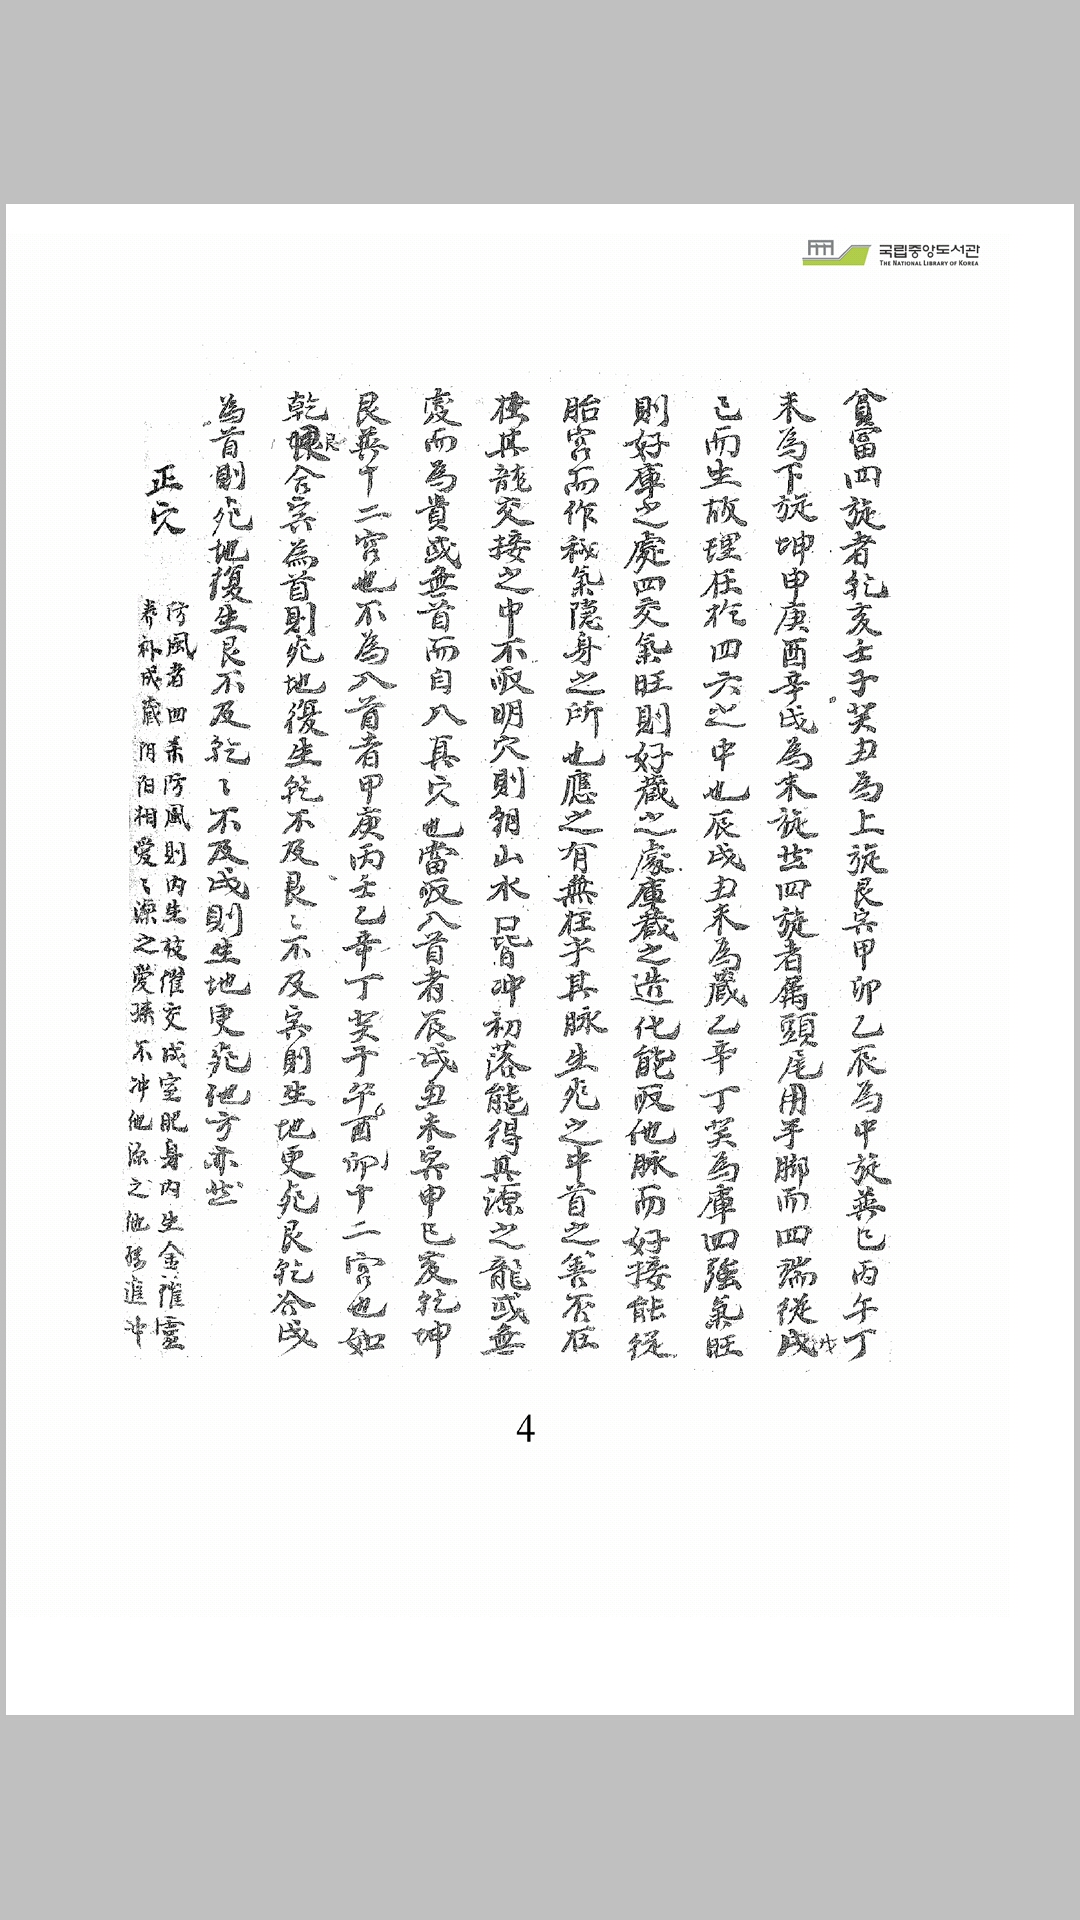 국립중앙도서관
THE NATIONAL LIBRARY OF KOREA
貧富四旋者乾亥壬子癸丑為上旋艮寅甲卯乙辰為中旋巽巳丙午丁
未為下旋坤申庚酉辛戌為末旋玆四旋者屬頭尾用手脚而四端從戊戊
己而生故理在於四六之中也辰戌丑未為藏乙辛丁癸為庫四強氣旺
則好庫之處四交氣旺則好藏之處庫藏之造化能取他脉而好接能從
胎宮而作秘氣隱身之所也應之有無在乎其脉生死之中首之善否在
其龍交接之中不取明穴則朝山水口皆冲初落能得其源之龍或無
處而為貴或無首而自入真穴也當取入首者辰戌丑未寅申巳亥乾坤
艮巽十二宮也不為入首者甲庚丙壬乙辛丁癸子午酉卯十二宮也如
乾艮合寅為首則死地復生乾不及艮〻不及寅則生地更死艮乾合戌
為首則死地復生艮不及乾〻不及戌則生地更死他方亦然
正穴
防風者四未防風則內生枝催交成室肥身內生金權靈
養補成處阴阳相愛〻深之愛孫不冲他源之他弱進冲
4